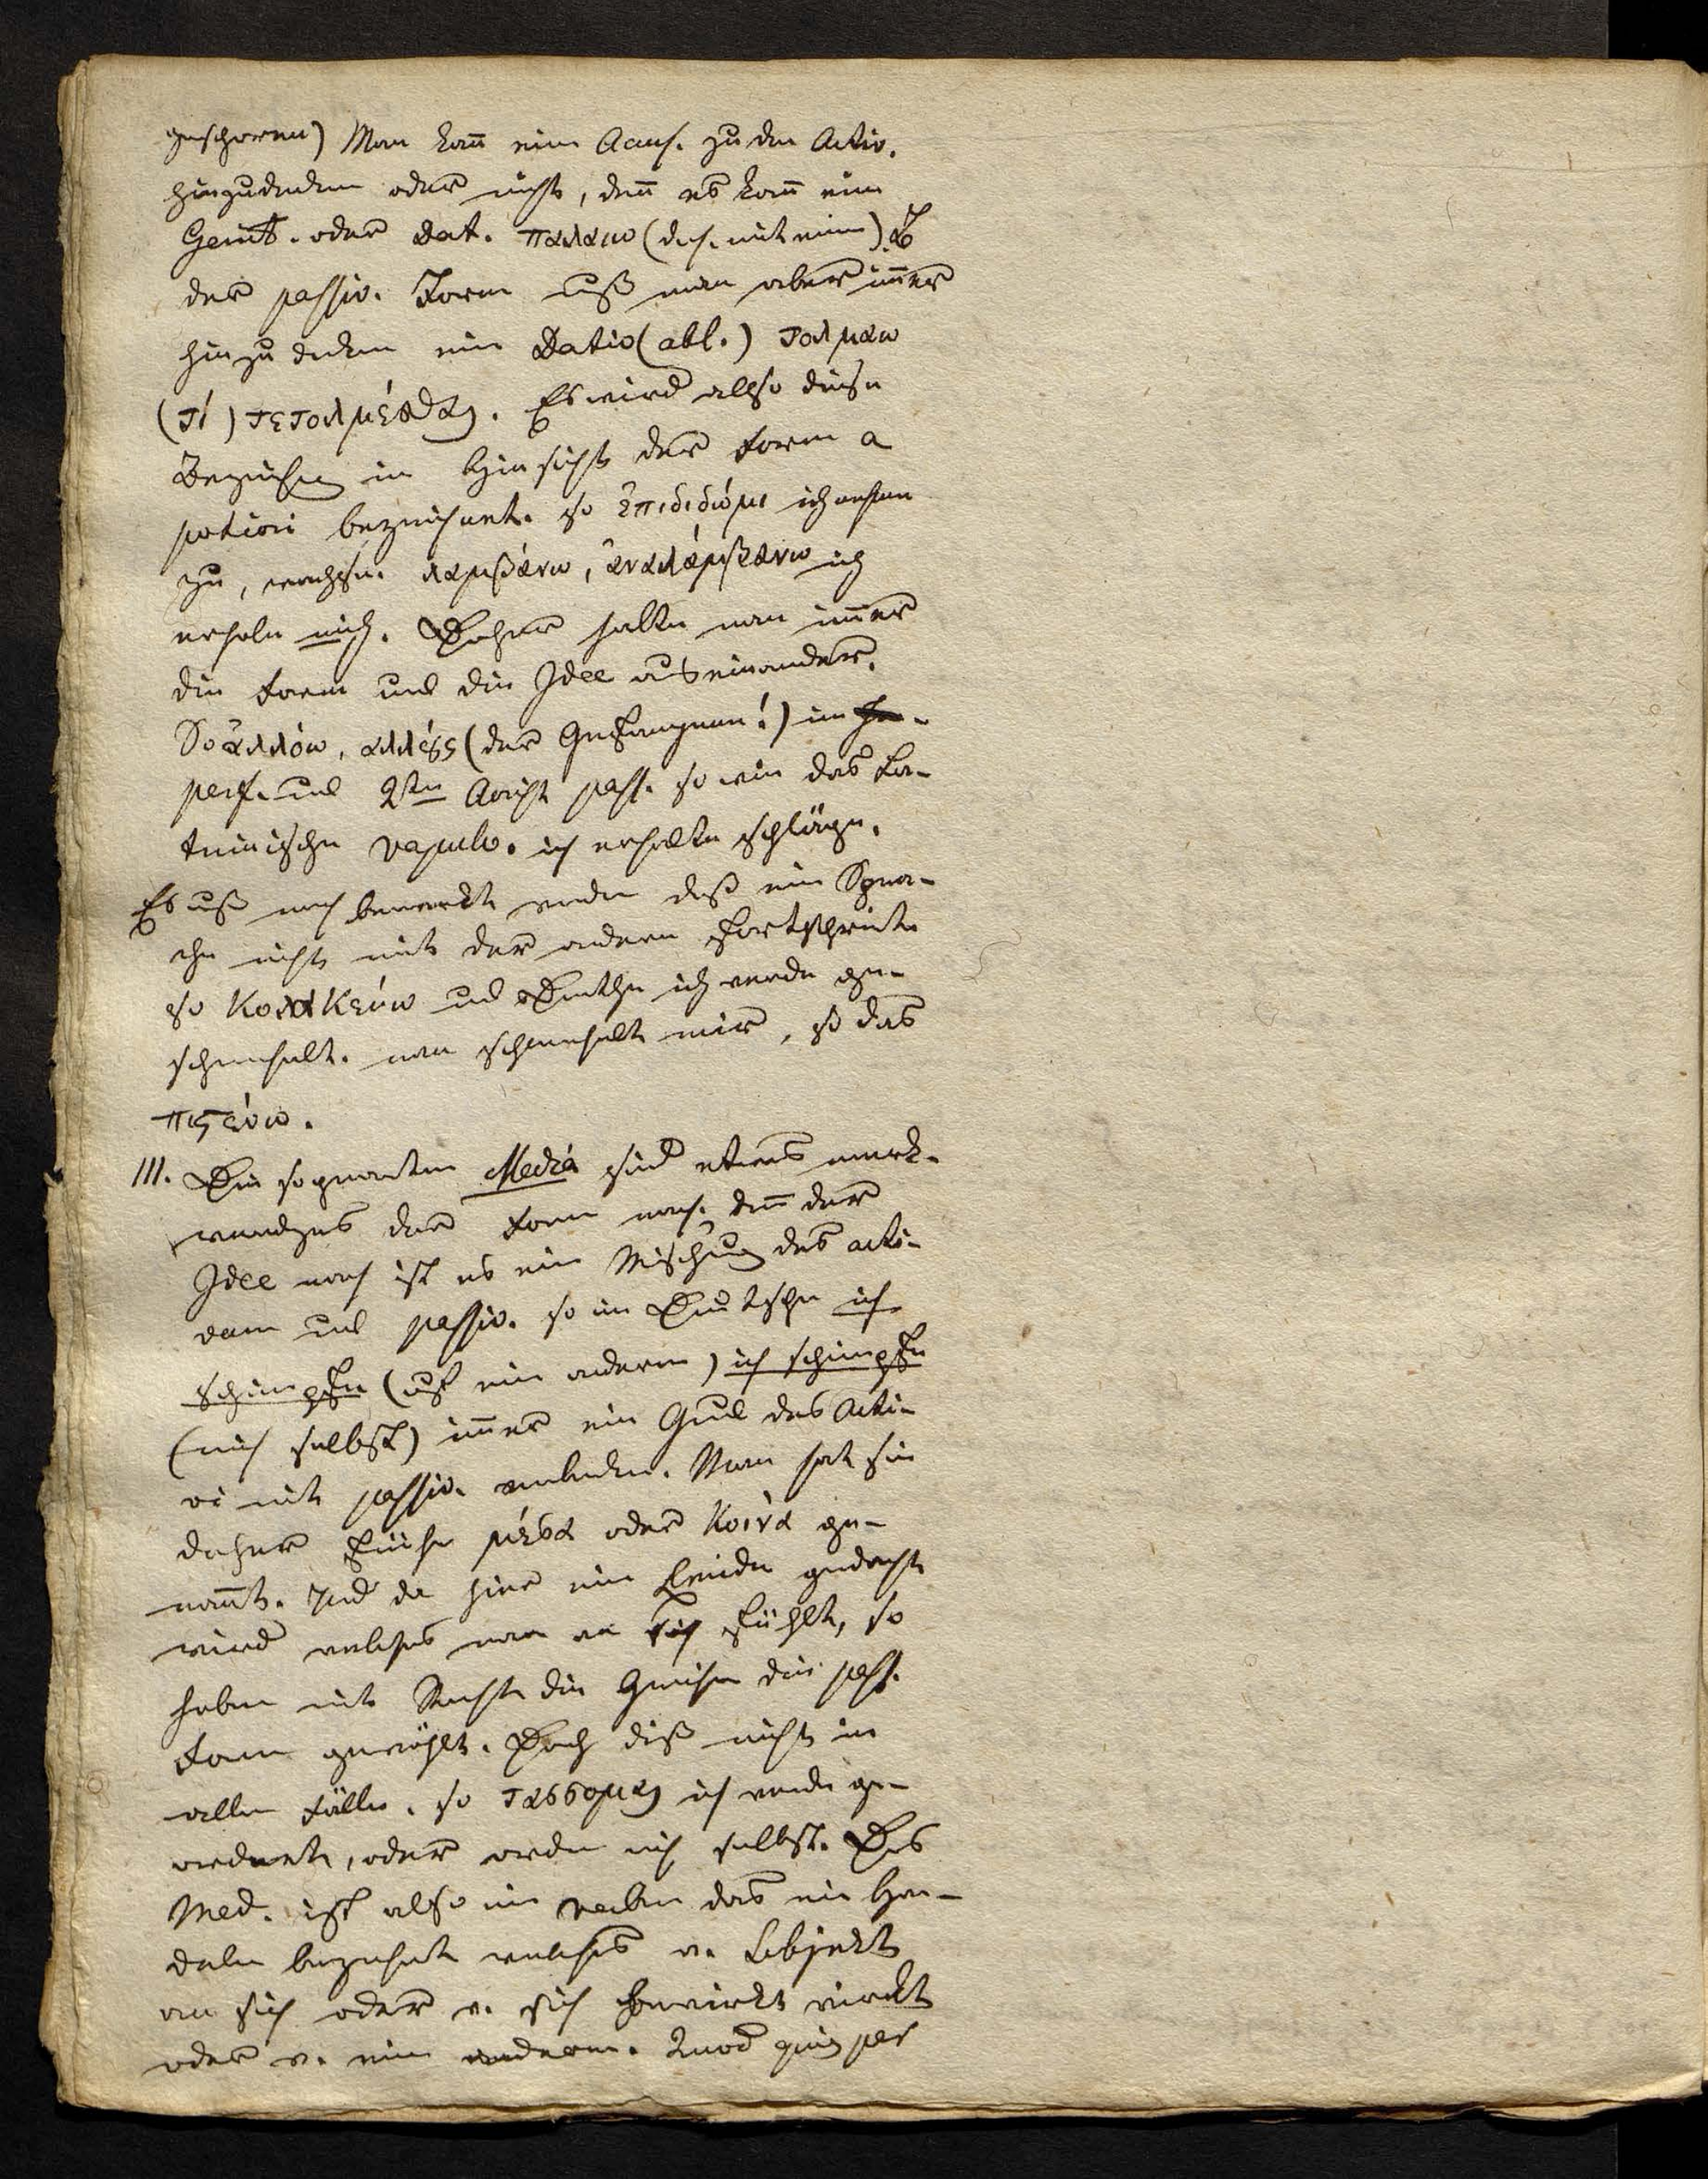 geschoren) Man kan̄ eine Accus. zu den Activ.
hinzudenken oder nicht, den̄ es kan̄ ein
Genit. oder Dat. παλαιω (des. mit einem)
der passiv. Form muß man aber im̄er
hinzu denken ein Dativ (abl.) τολμαω
(τὶ) τετολμέσθαι. Es wird allso diese
Beziehung in Hinsicht der Form a
potiori bezeichnet. so ἐπιδιδώμι ich nehme
zu, wachse. λαμβάνω, ἀναλάμβανω ich
erhole mich. Daher halte man im̄er
die Form und die Idee auseinander.
So ἁλλόω, (der Gefangene!) im
perf. und 2ten Aorist pass. so wie das La-
teinische vapulo. ich erhalte schläge.
Es muß noch bemerkt werden daß eine Spra-
che nicht mit der andern fortschreite
so Κολακεύω und Deutsche ich werde ge-
schmeichelt. man schmeichelt mir, so das
πιςεύω.
III. Die sogenanten Media sind etwas merk-
wurdiges der Form nach. den̄ der
Idee nach ist es eine Mischung des acti-
vum und passiv. so im Deutschen ich
schimpfe (auf ein anderen) ich schimpfe
(mich selbst) im̄er ein Glied des Acti-
vi mit passiv. verbunden. Man hat sie
daher frühe μέσα oder Κοινὰ ge-
nan̄t. Und da hier ein Leiden gedacht
wird welches man an sich fühlt, so
haben mit Recht die Griechen die pass.
Form gewählt. Doch diß nicht in
allen Fällen. so τασσομαι ich werde ge-
ordnet, oder ordne mich selbst. Das
Med. ist also ein verbum das ein Han-
deln bezeichnet welches v. Subjekt
an sich oder v. sich bewirkt wirdt
oder v. einem anderen. Quod quis per